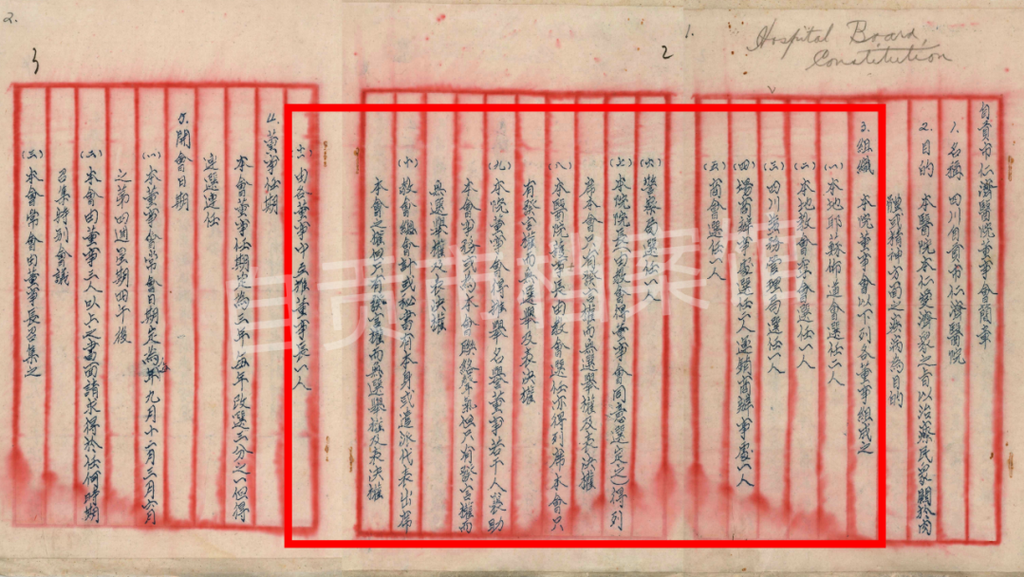 Hospital Board,
Constitution
1.
自貢市仁濟醫院董事會簡章
1. 名稱 四川自貢市仁濟醫院
2. 目的 本醫院本仁愛濟眾之旨以治療民眾關於肉
體或精神方面之疾病為目的
3. 組織 本院董事會以下列各董事組成之
(一)本地耶穌師道會選任二人
(二)本地教會眾會選任一人
(三)四川鹽務管理局選任一人
(四)場商辦事處選任一人運銷商辦事處一人
(五)商會選任一人
2
(六)警察局選任一人
(七)本院院長由教會得董事會同意選定之得列
席本會只有發言權而無選舉權及表決權
(八)本醫院護士長由教會選任亦得列席本會只
有發言權而無選舉及表決權
(九)本院董事會得推舉名譽董事若干人襄助
本會事務或為本會聯絡聲氣但只有發言權而
無選舉權及表決權
(十)教會總會計或秘書有本身或遣派代表出席
本會之權但只有發言權而無選舉權及表決權
2.
3
(十一)由各董事中互推董事長一人
4. 董事任期
本會董事任期定為三年每年改選三分之一但得
連選連任
5. 開會日期
(一)本董事會常會日期定為每年九月十二月三月六月
之第四週星期四午後
(二)本會由董事三人以上之書面請求得於任何時期
召集特別會議
(三)本會常會由董事長召集之
自贡市档案馆